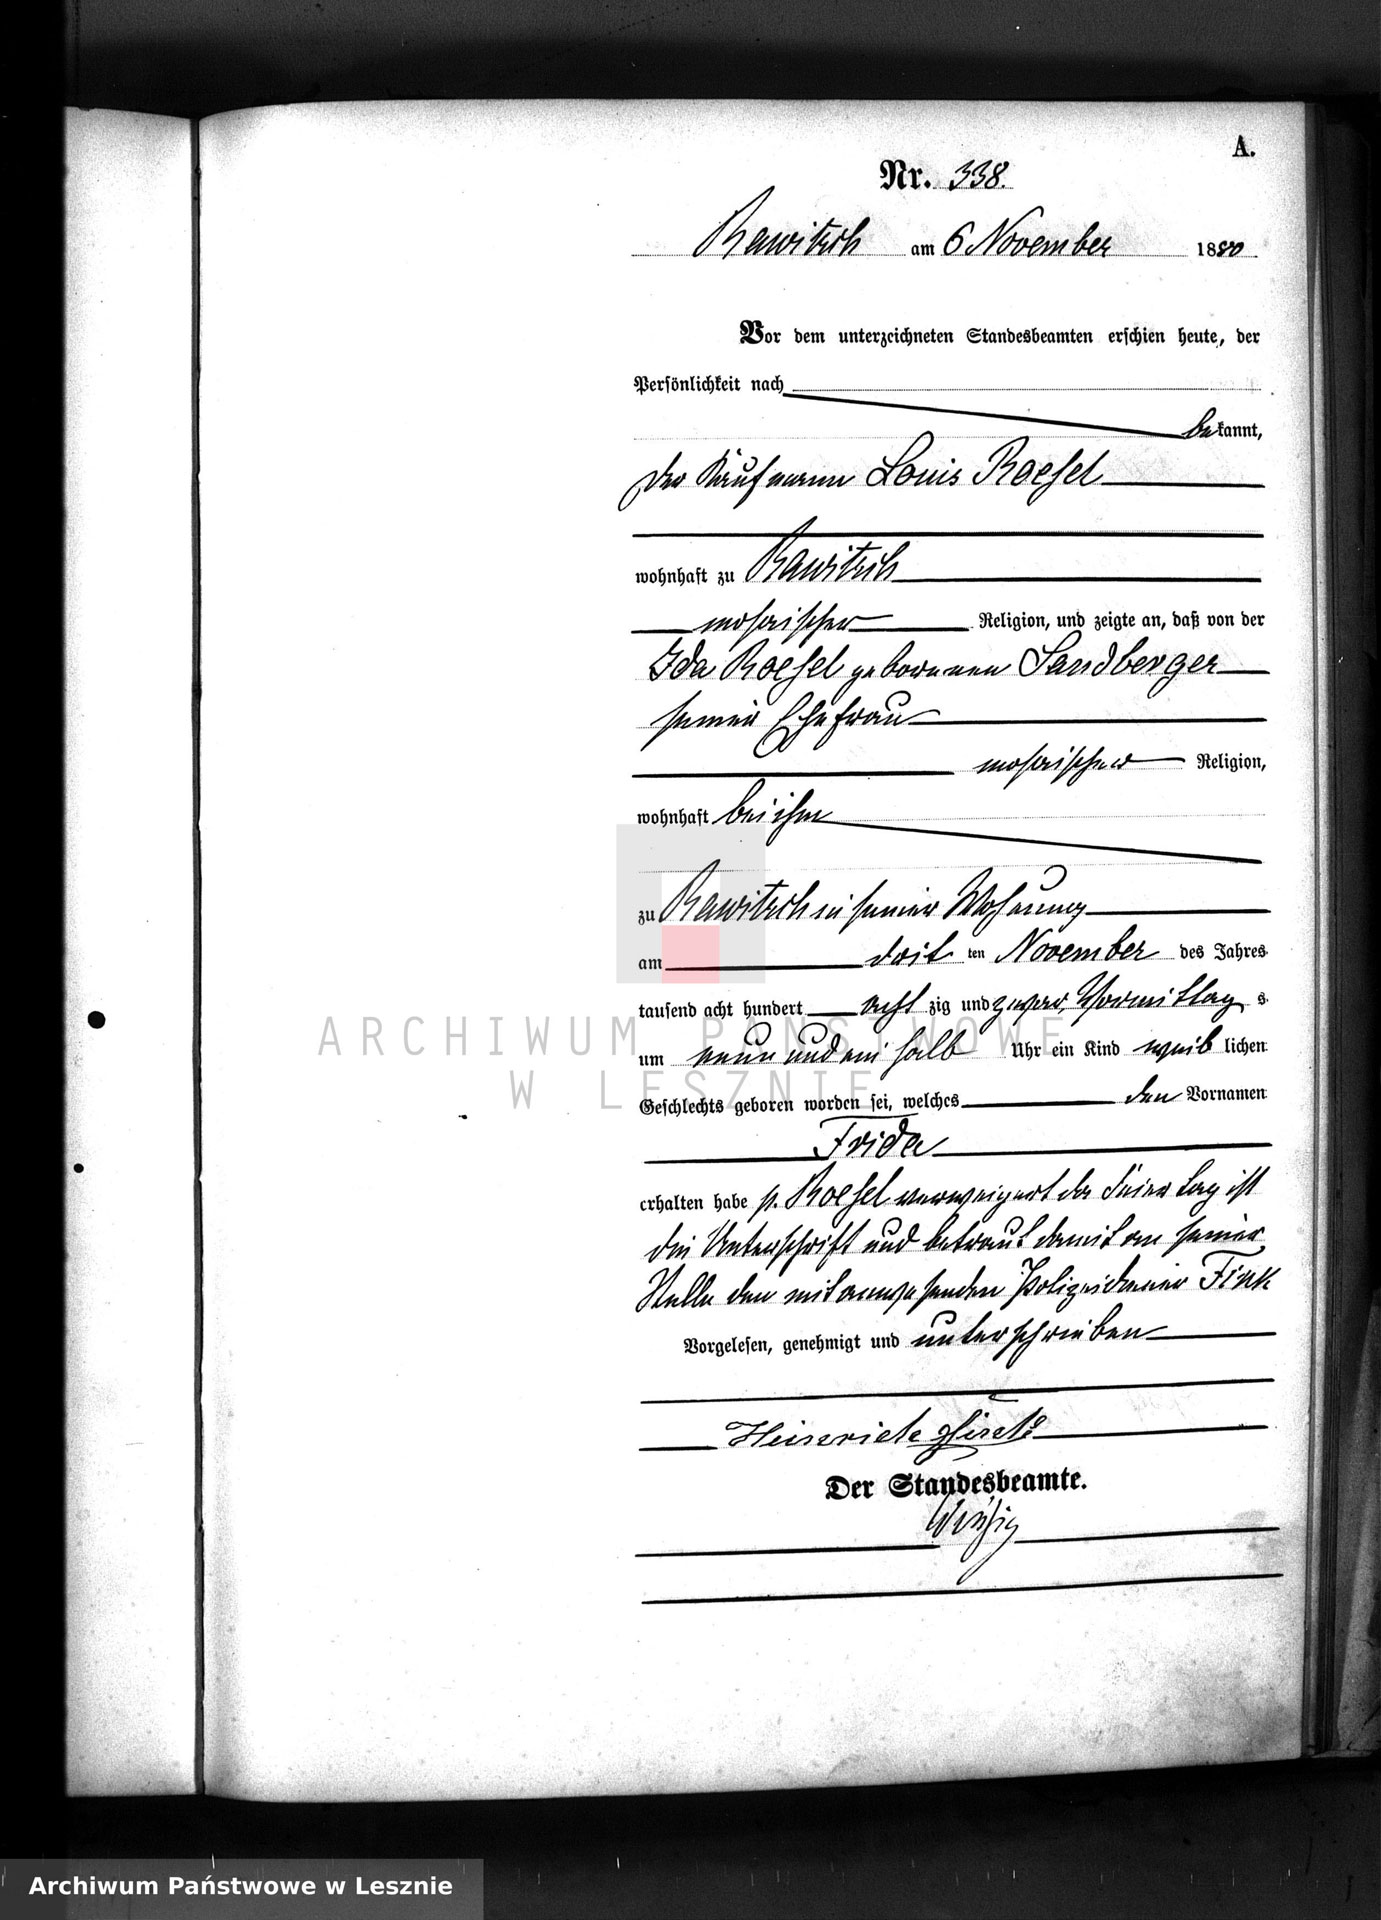 A.
Nr. 338.
Rawitsch am 6 November 1880
Vor dem unterzeichneten Standesbeamten erschien heute, der
Persönlichkeit nach
bekannt,
der Kaufmann Louis Roesel
wohnhaft zu Rawitsch
mosaischer Religion, und zeigte an, daß von der
Ida Roesel geborenen Sandberger
seiner Ehefrau
mosaischer Religion,
wohnhaft bei ihm
zu Rawitsch in seiner Wohnung
am drit ten November des Jahres
tausend acht hundert acht zig und zwar Vormittag s
um neun und ein halb Uhr ein Kind weib lichen
Geschlechts geboren worden sei, welches den Vornamen
Frida
erhalten habe p. Roesel verweigert da Feiertag ist
die Unterschrift und betraut damit an seiner
Stelle den mitanwesenden Polizeidiener Fink
Vorgelesen, genehmigt und unterschrieben
Der Standesbeamte.
ARCHIWUM PAŃSTWOWE
W LESZNIE
Archiwum Państwowe w Lesznie